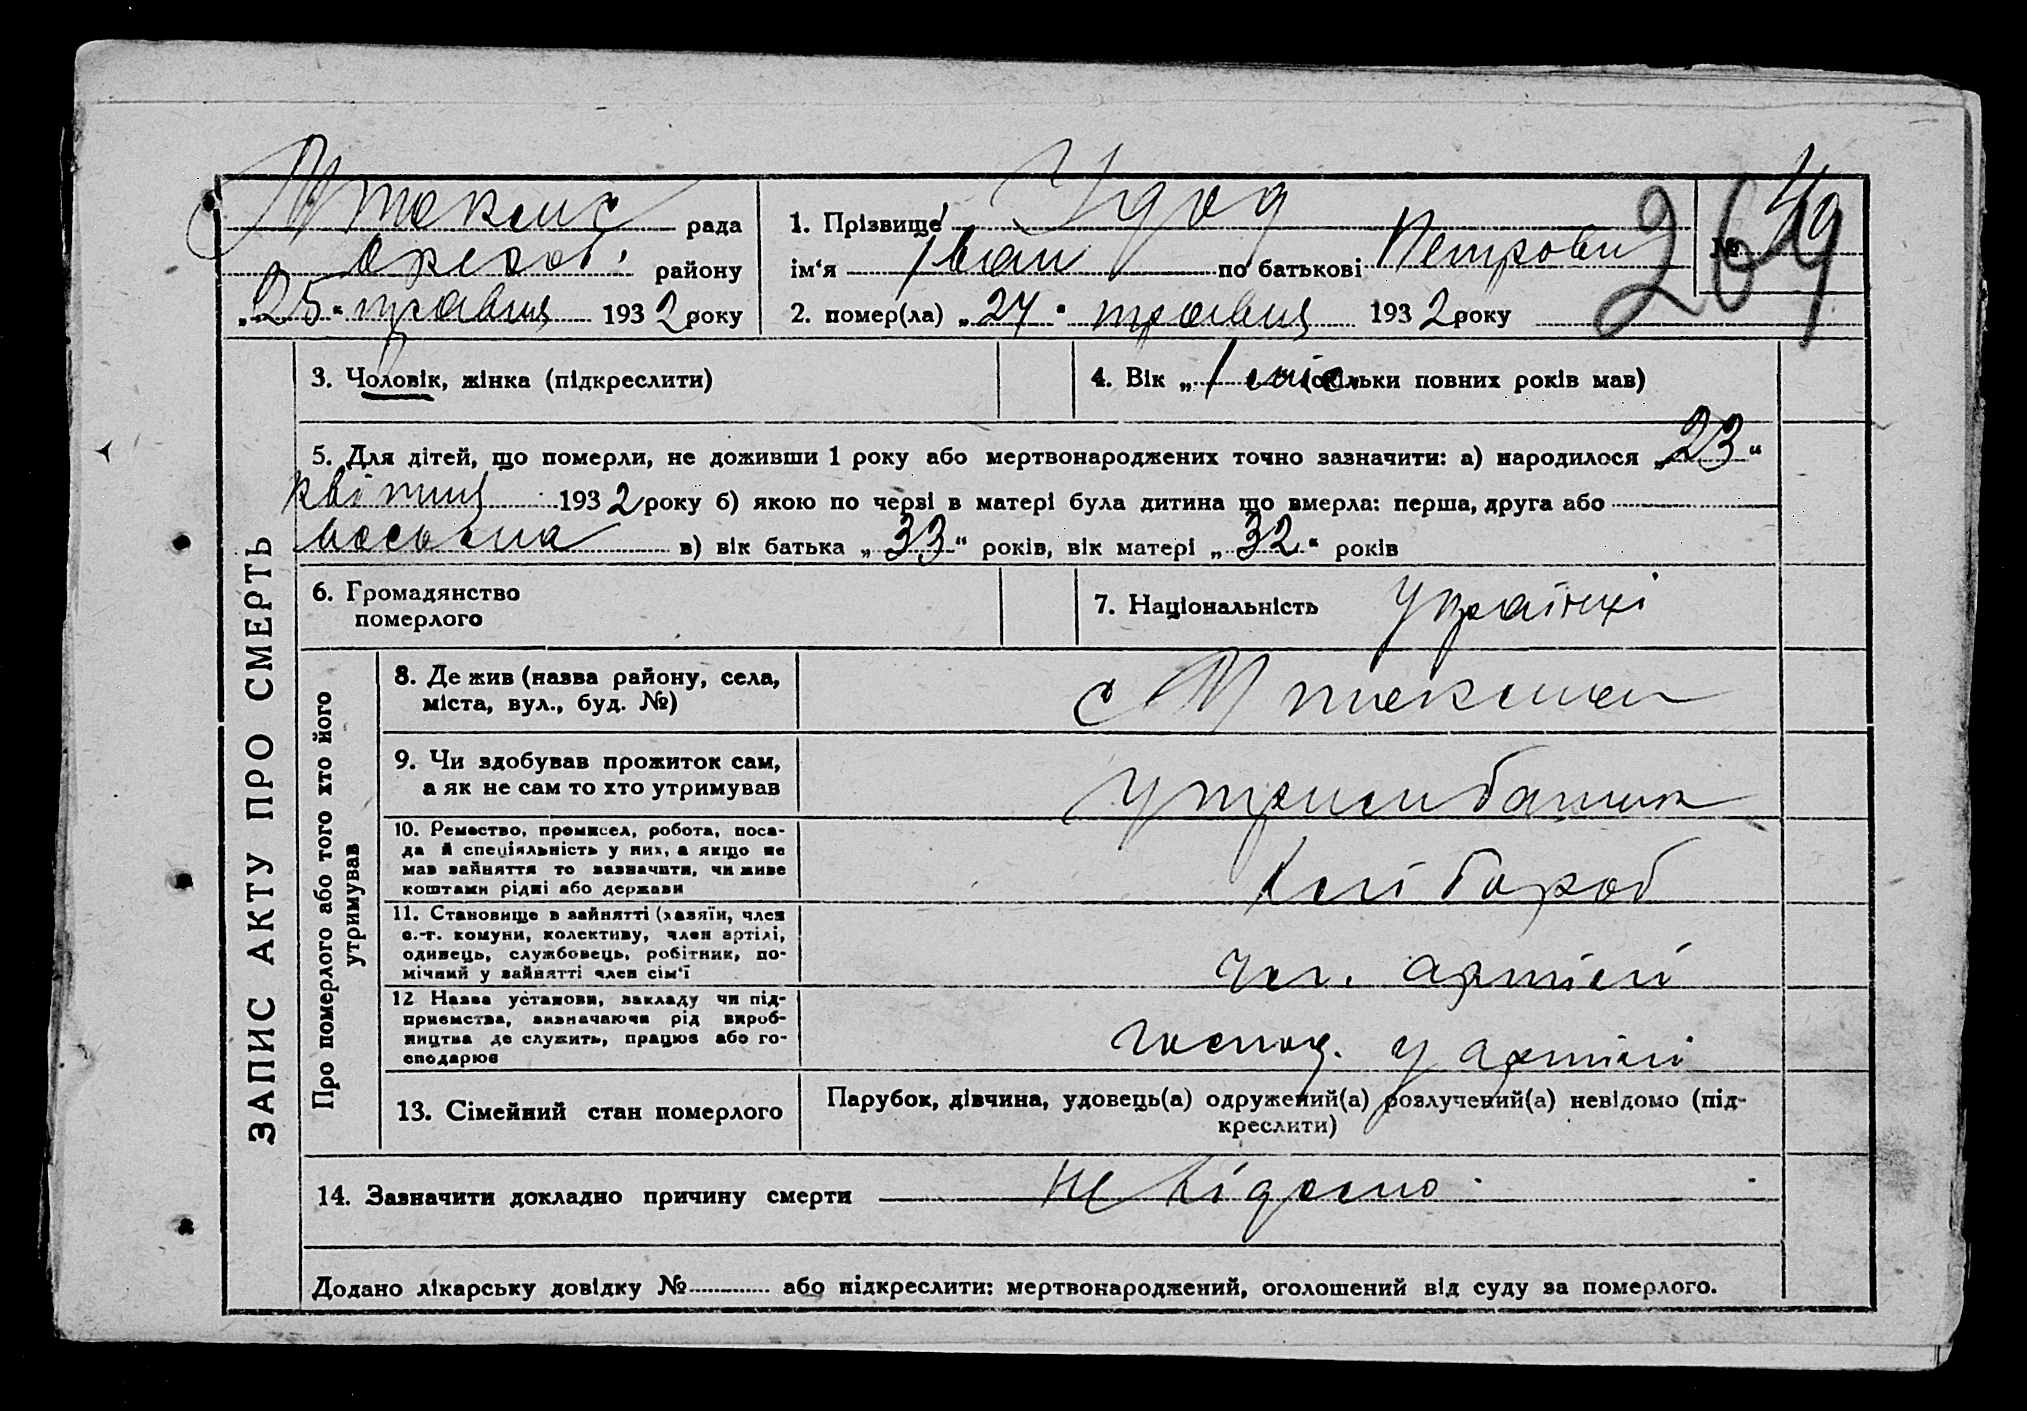 М Токмак рада
Оріхов. району
„25“ травня 1932 року
1. Прізвище Удод
ім‘я Іван по батькові Петрович
2. помер(ла) „24“ травня 1932 року
№ 49
269
ЗАПИС АКТУ ПРО СМЕРТЬ
3. Чоловік, жінка (підкреслити)
4. Вік „ 1 міс. (скільки повних років мав)
5. Для дітей, що померли, не доживши 1 року або мертвонароджених точно зазначити: а) народилося „23“
квітня 1932 року б) якою по черзі в матері була дитина що вмерла: перша, друга або
восьма в) вік батька „33“ років, вік матері „32“ років
6. Громадянство
померлого
7. Національність Українці
Про померлого або того хто його
утримував
8. Де жив (назва району, села,
міста, вул., буд. №)
с М Токмак
9. Чи здобував прожиток сам,
а як не сам то хто утримував
10. Ремество, промисел, робота, поса-
да й спеціяльність у них, а якщо не
мав зайняття то зазначити, чи живе
коштами рідні або держави
хлібороб
11. Становище в зайнятті (хазяїн, член
с.-г. комуни, колективу, член артілі,
одинець, службовець, робітник, по-
мічний у зайнятті член сім‘ї
чл. артілі
12 Назва установи, закладу чи під-
приємства, зазначаючи рід вироб-
ництва де служить, працює або го-
сподарює
господ. у артілі
13. Сімейний стан померлого
Парубок, дівчина, удовець(а) одружений(а) розлучений(а) невідомо (під-
креслити)
14. Зазначити докладно причину смерти не відомо
Додано лікарську довідку № або підкреслити: мертвонароджений, оголошений від суду за померлого.